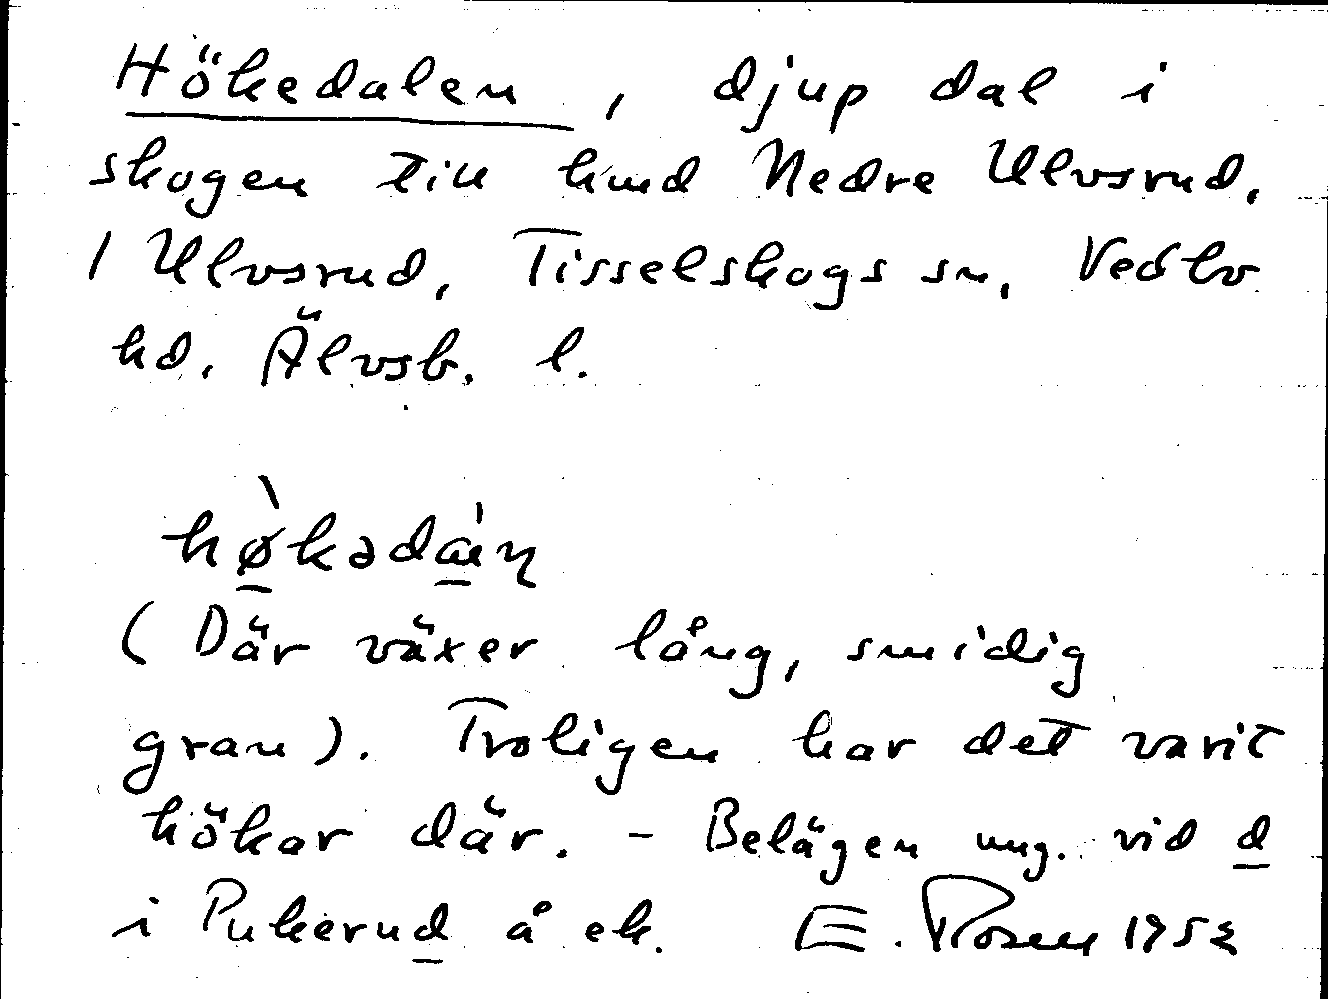 Hökedalen, djup dal i
skogen till hmd Nedre Ulvsrud,
1 Ulvsrud, Tisselskogs sn, Vedbo
hd, Älvsb. l.
(Där växer lång, smidig
gran). Troligen har det varit
hökar där. - Belägen ung. vid d
i Pukerud å ek. E. Rosen 1952